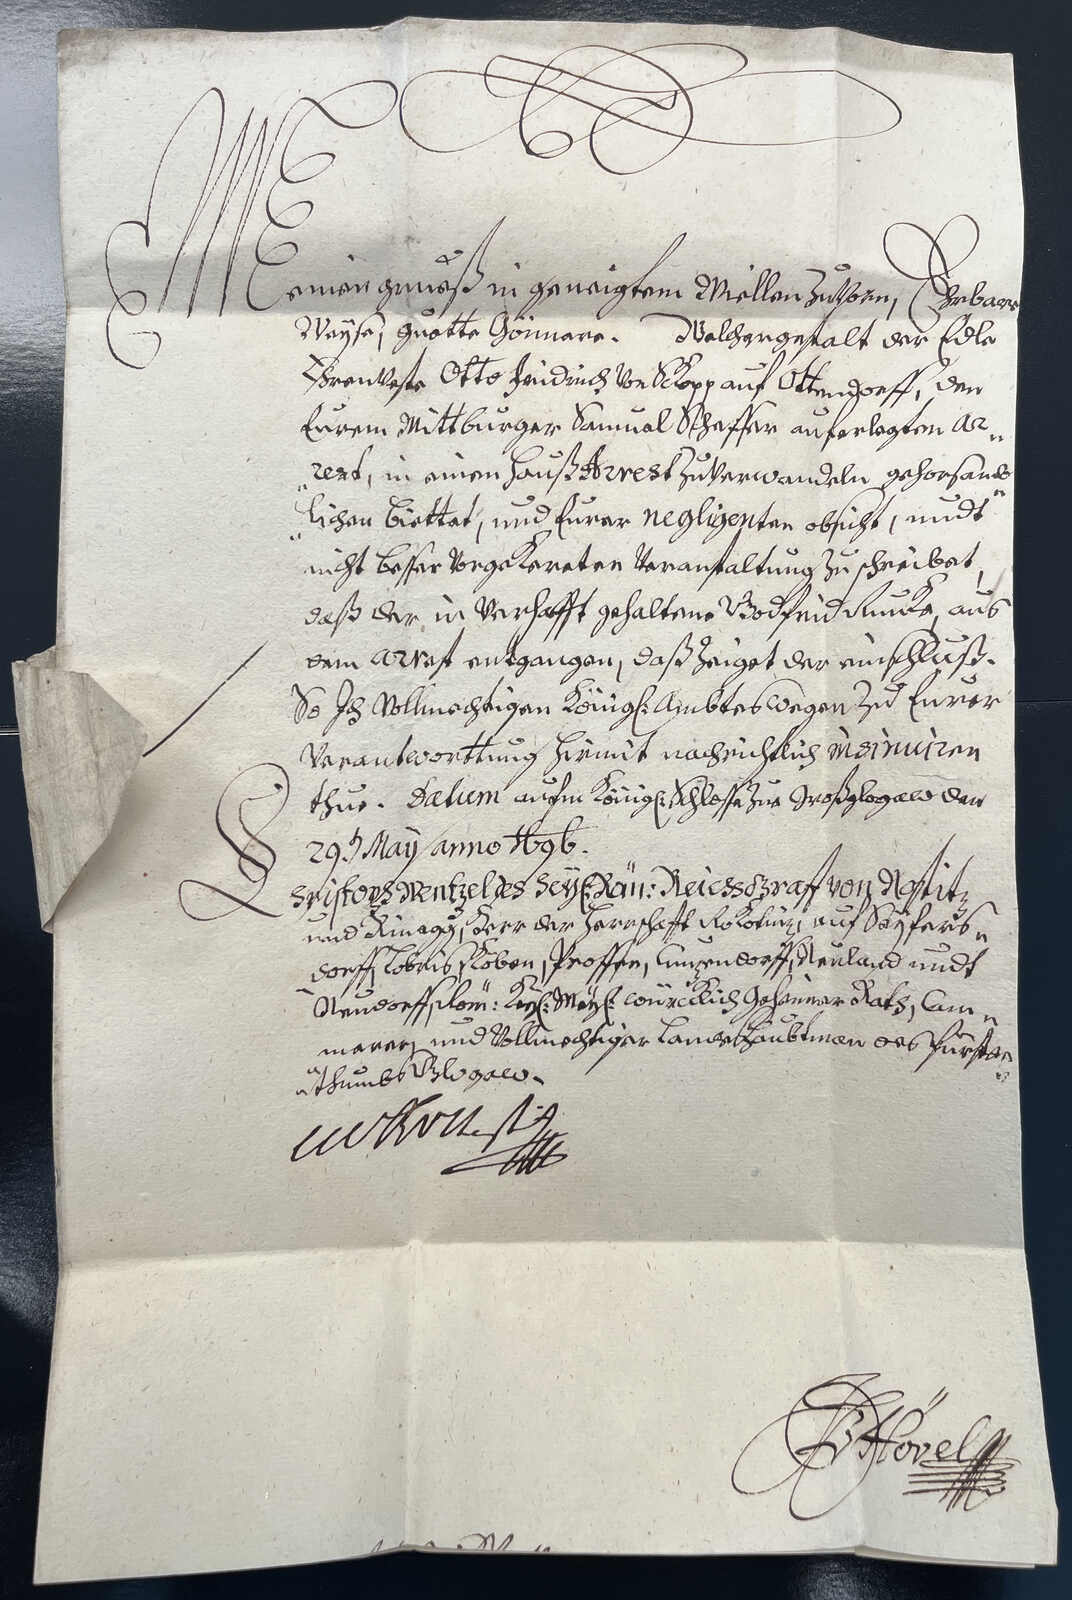 Meinen gruueß in geneigtem Wiellen zuvorn, Ehrbare
Weyse, guette Gönnere. Welchergestalt der Edle
Ehrenveste Otto Fridrich von Skopp auf Ottendorff, den
Eurem Mittburger Samuel Scheffer auferlegten Ar-
rest, in einen Hauß Arrest zu verwandeln gehorsamb-
lichen biettet, und Eurer negligenten obsicht, undt
nicht besser vorgekereten Veranstaltung zu schreibet,
daß der in Verhafft gehaltene aus
dem Arrest entgangen, daß zeiget der einschluß.
So Ich Vollmechtigen Königl: Ambtes wegen zu Eurer
Verantworttung hiemit nachrichtlich insinuiren
thue. Datum aufm Königl: Schlosse zue Großglogaw den
29.t May anno 1696.
Christoph Wentzel des Heyl: Röm: Reichs Graff von Nostitz
und Rineggkh, Herr der Herrschafft Rokitniz, auf Seyfers-
dorff, Lobris, Koben, Proffen, Cunzendorff, Neuland undt
Neudorff, Röm: Kay: May: würcklich Geheimer Rath, Cam-
merer, und Vollmechtiger Landeshaubtman des Fürsten-
thumbs Glogaw.
CW v Nostitz
Hövel